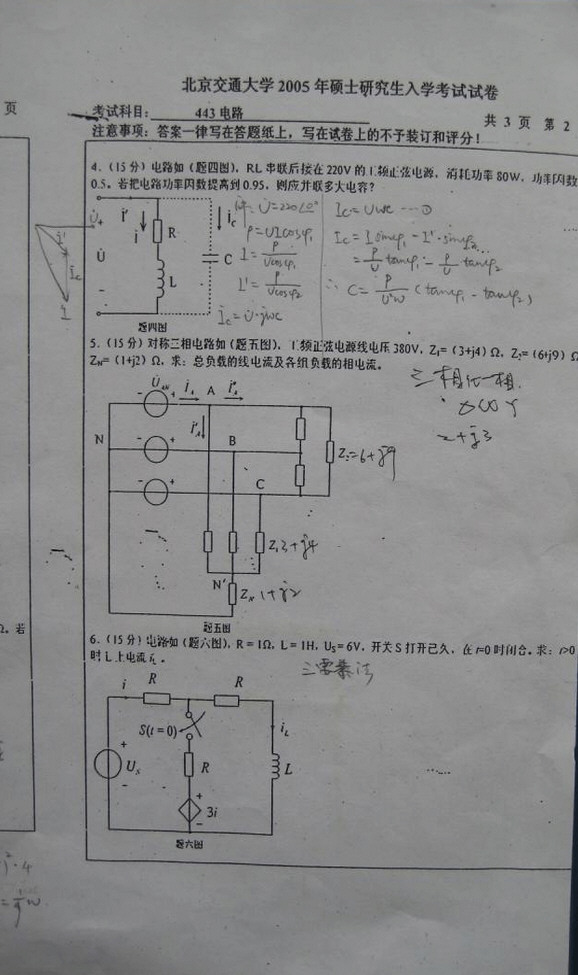 北京交通大学 2005 年硕士研究生入学考试试卷
页
考试科目: 443 电路
共 3 页 第 2
注意事项: 答案一律写在答题纸上, 写在试卷上的不予装订和评分!
4. (15 分) 电路如 (题四图), RL 串联后接在 220V 的工频正弦电源, 消耗功率 80W, 功率因数
0.5。若把电路功率因数提高到 0.95, 则应并联多大电容?
U̇=220∠0°
P=UIcosφ₁
I=P/Ucosφ₁
I'=P/Ucosφ₂
İc=U̇·jωC
Ic=UωC ---①
Ic=Isinφ₁-I'·sinφ₂
=P/U tanφ₁-P/U tanφ₂
∴ C=P/U²ω (tanφ₁-tanφ₂)
U̇
+
İ'
i
R
L
İc
C
-
İ'
İc
İ
题四图
5. (15 分) 对称三相电路如 (题五图), 工频正弦电源线电压 380V, Z₁= (3+j4) Ω, Z₂= (6+j9) Ω
Z_N= (1+j2) Ω, 求: 总负载的线电流及各组负载的相电流。
三相化一相
2+j3
U̇_AN
İ_A
A
İ''_A
İ'_A
N
B
C
Z₂=6+j9
Z₁3+j4
N'
Z_N 1+j2
题五图
Ω。若
6. (15 分) 电路如 (题六图), R = 1Ω, L = 1H, U_S = 6V, 开关 S 打开已久, 在 t=0 时闭合。求: t>0
时 L 上电流 i_L 。
三要素法
i
R
R
S(t = 0)
i_L
+
U_S
-
R
L
+
3i
-
题六图